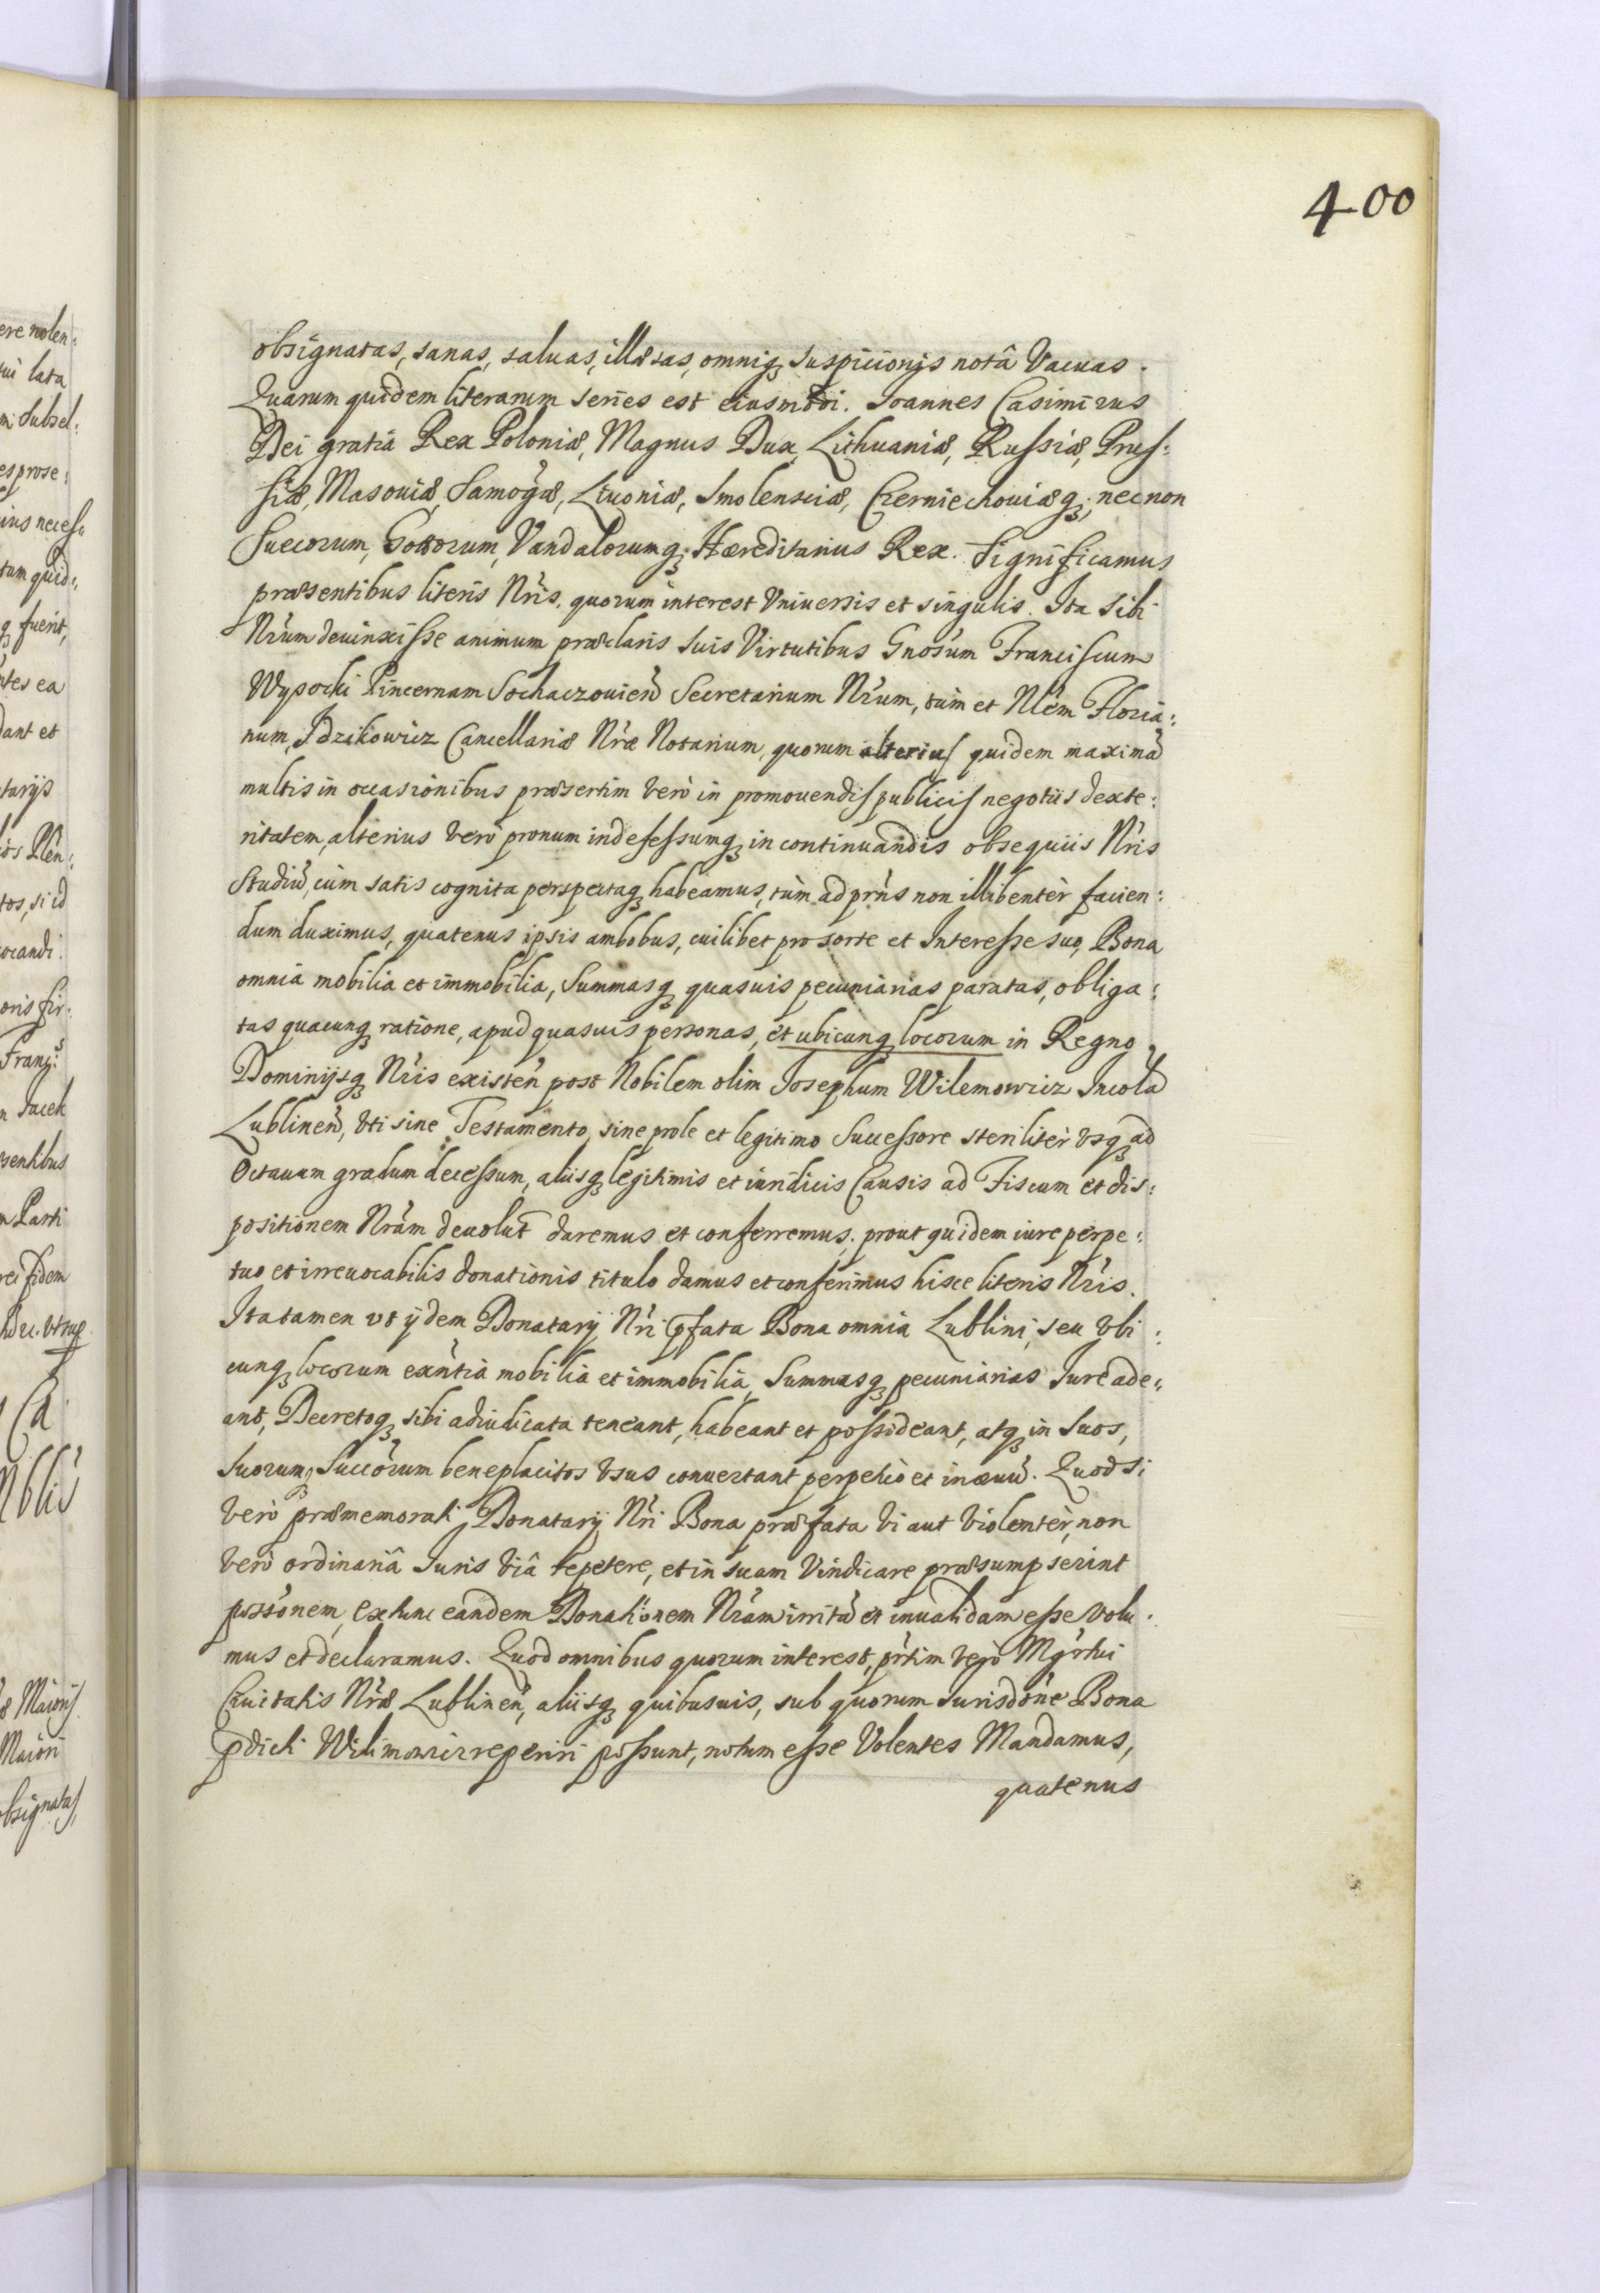 400
obsignatas, sanas, saluas, illæsas, omniq suspicionis notâ Vacuas.
Quarum quidem literarum series est eiusmodi. Joannes Casimirus
Dei gratiâ Rex Poloniæ, Magnus Dux Lithuaniæ, Russiæ, Prus:
siæ, Masouiæ, Samogæ, Liuoniæ, Smolensciæ, Czerniechouiæq; necnon
Suecorum, Gottorum, Vandalorumq Hæreditarius Rex. Significamus
præsentibus literis Nris. quorum interest Vniuersis et singulis. Ita sibi
Nrum deuinxisse animum præclaris suis Virtutibus Gnosum Franciscum
Wysocki Pincernam Sochaczouien Secretarium Nrum, tum et Nlem Floria:
num Idzikowicz Cancellariæ Nræ Notarium, quorum alterius quidem maximã
multis in occasionibus præsertim verò in promouendis publicis negotiis dexte:
ritatem, alterius verò pronum indefessumq in continuandis obsequiis Nris
Studiũ, cùm satis cognita perspectaq habeamus, tùm ad prns non illibentèr facien:
dum duximus, quatenus ipsis ambobus, cuilibet pro sorte et Interesse suo, Bona
omnia mobilia et immobilia, Summasq quasuis pecuniarias paratas, obliga:
tas quacunq ratione, apud quasuis personas, et ubicunq locorum in Regno,
Dominijsq Nris existen post Nobilem olim Josephum Wilemowicz Incolã
Lublinen, vti sine Testamento, sine prole et legitimo Successore sterilitèr vsq ad
Octauum gradum decessum, aliisq legitimis et iuridicis Causis ad Fiscum et dis:
positionem Nram deuolut daremus et conferremus; prout quidem iure perpe:
tuo et irreuocabilis donationis titulo damus et conferimus hisce literis Nris.
Ita tamen vt ijdem Donatarij Nri pfata Bona omnia Lublini, seu vbi:
cunq locorum exantia mobilia et immobilia, Summasq pecuniarias Jure ade:
ant, Decretoq sibi adiudicata teneant, habeant et possideant, atq in suos,
suorumq Succorum beneplacitos vsus conuertant perpetuò et in æuũ. Quod si
verò præmemorati Donatarij Nri Bona præfata vi aut violentèr, non
verò ordinariâ Juris viâ repetere, et in suam Vindicare præsumpserint
possonem, ex tunc eandem Donationem Nram irritã et inualidam esse volu:
mus et declaramus. Quod omnibus quorum interest, prtim verò Mgrtui
Ciuitatis Nræ Lublinen, aliisq quibusuis, sub quorum Jurisdone Bona
pdicti Wilimowicz reperiri possunt, notum esse Volentes Mandamus,
quatenus